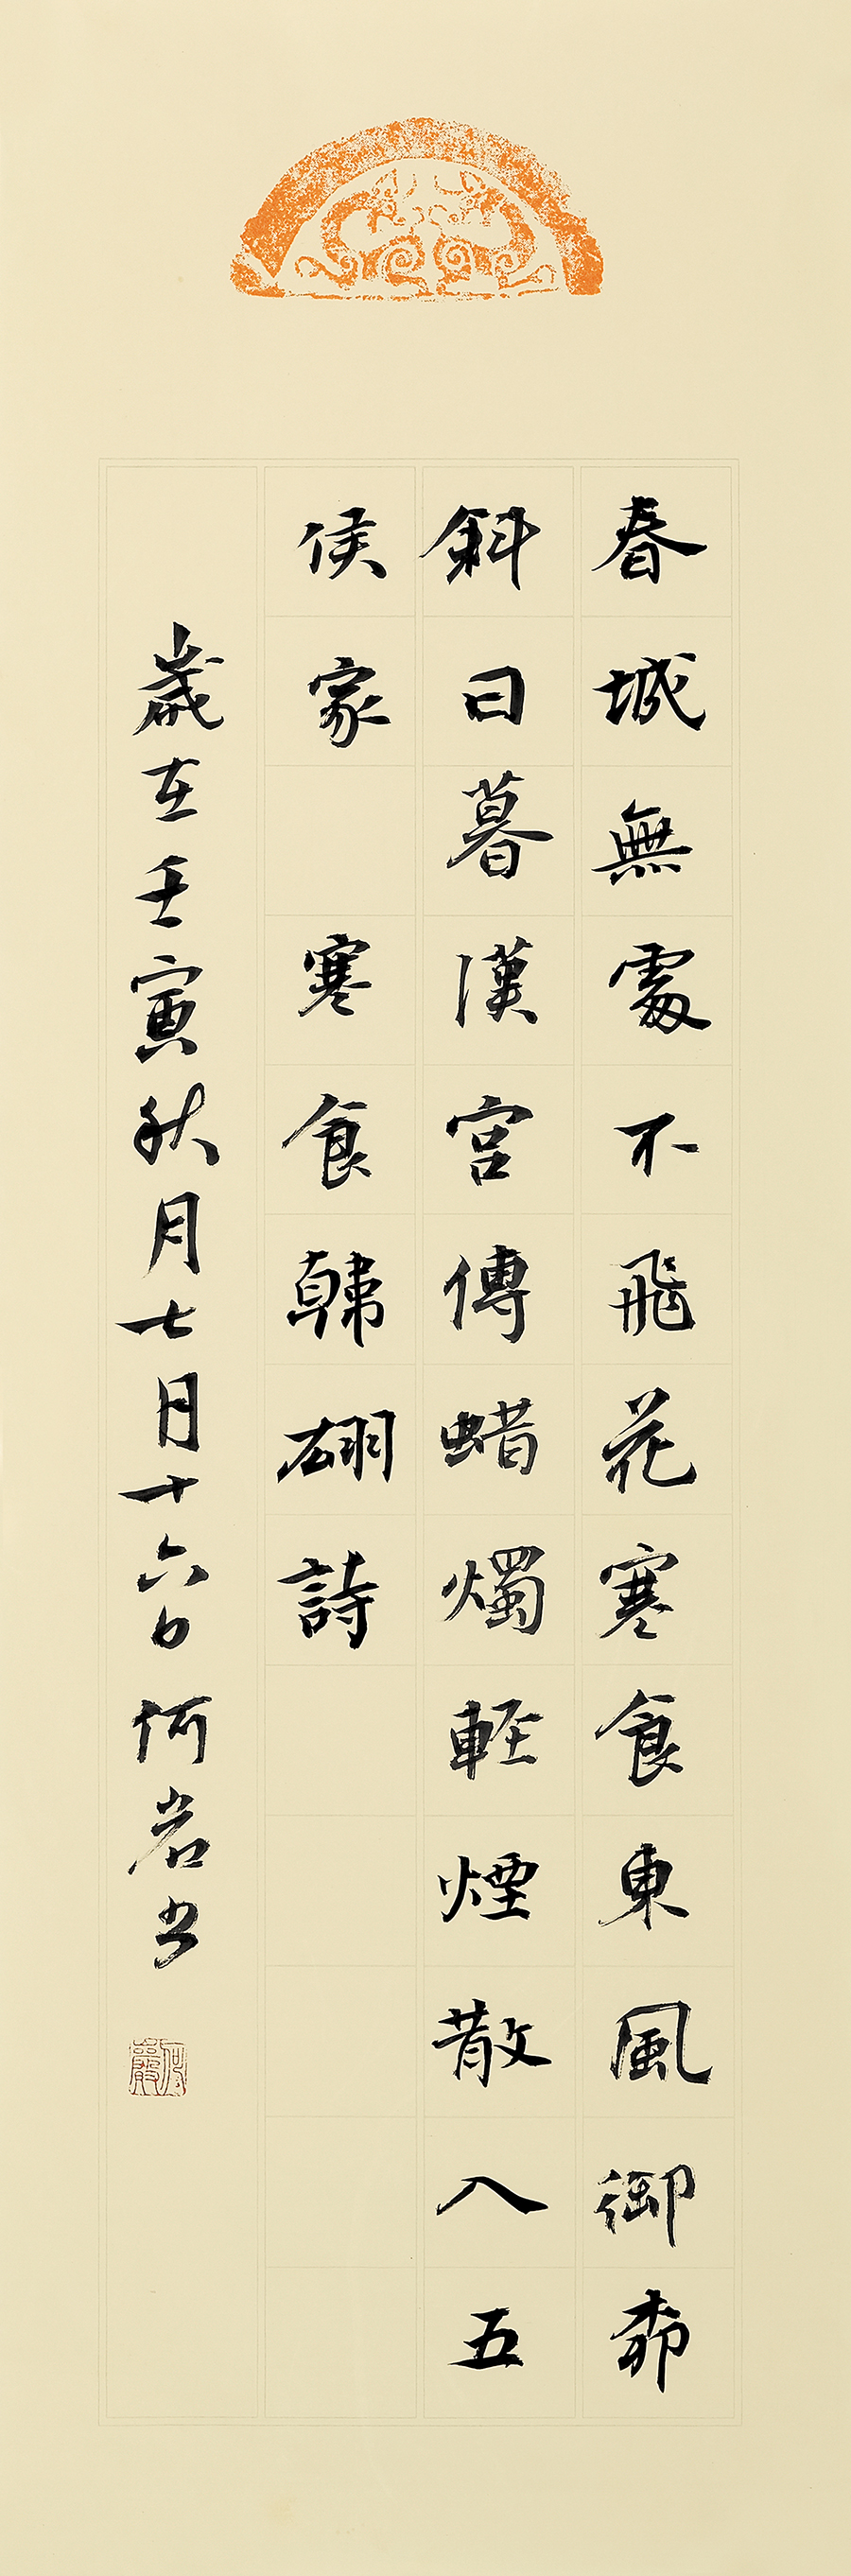 春城無處不飛花寒食東風御柳
斜日暮漢宮傳蜡燭輕煙散入五
侯家 寒食韓翃詩
歲在壬寅秋月七月十六日何岩书
何巖